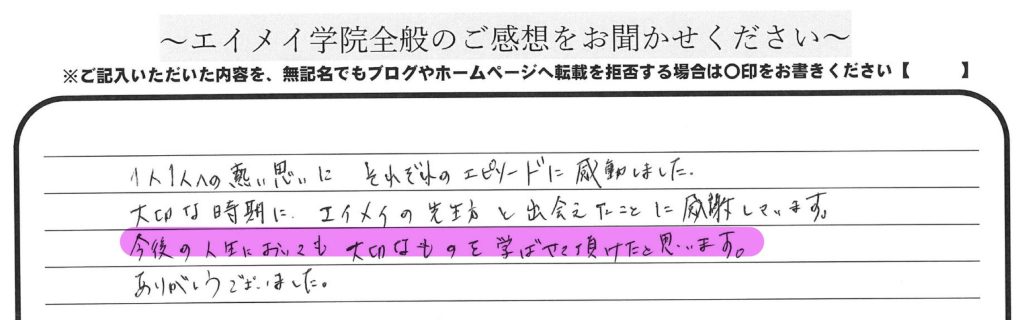 ～エイメイ学院全般のご感想をお聞かせください～
※ご記入いただいた内容を、無記名でもブログやホームページへ転載を拒否する場合は〇印をお書きください【　　　】
1人1人への熱い思いに それぞれのエピソードに感動しました。
大切な時期に、エイメイの先生方と出会えたことに感謝しています。
今後の人生においても大切なものを学ばせて頂けたと思います。
ありがとうございました。